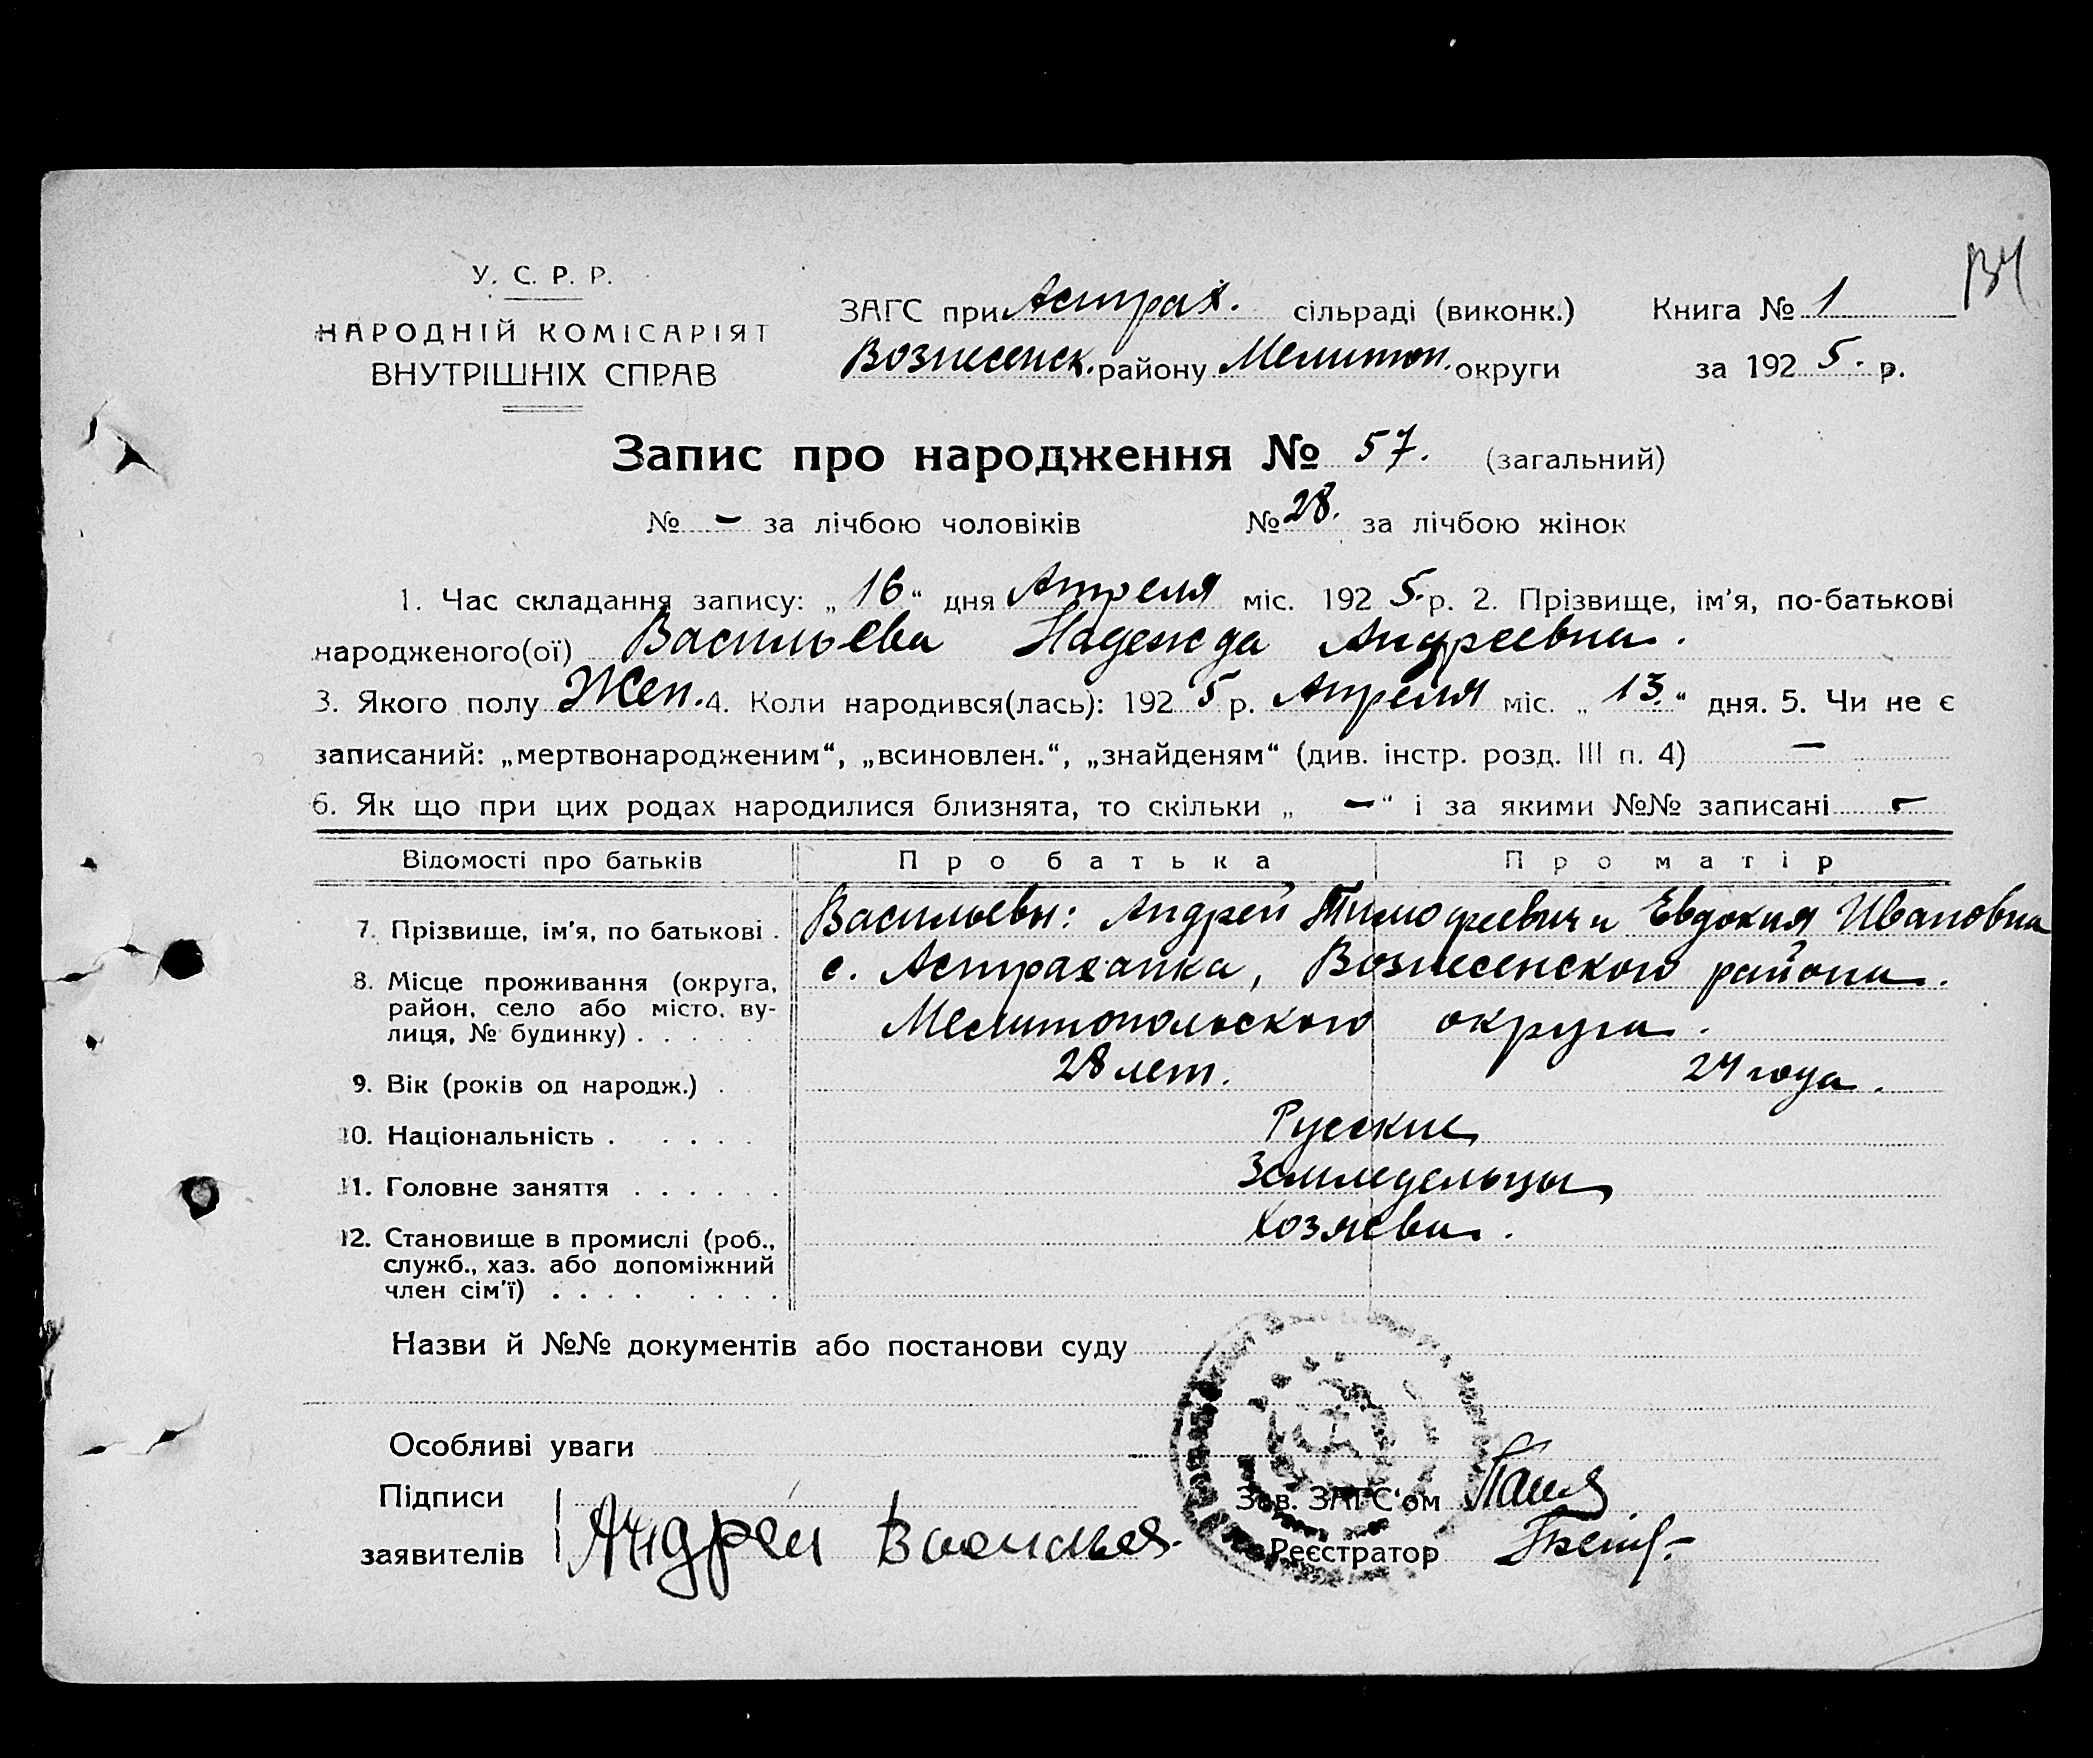 134
У. С. Р. Р.
НАРОДНІЙ КОМІСАРІЯТ
ВНУТРІШНІХ СПРАВ
ЗАГС при Астрах. сільраді (виконк.) Книга № 1
Вознесенск. району Мелитоп. округи за 1925 р.
Запис про народження № 57. (загальний)
№ – за лічбою чоловіків № 28. за лічбою жінок
1. Час складання запису: „16“ дня Апреля міс. 1925 р. 2. Прізвище, ім'я, по-батькові
народженого(ої) Васильева Надежда Андреевна.
3. Якого полу Жен. 4. Коли народився(лась): 1925 р. Апреля міс. „13.“ дня. 5. Чи не є
записаний: „мертвонародженим“, „всиновлен.“, „знайденям“ (див. інстр. розд. III п. 4) –
6. Як що при цих родах народилися близнята, то скільки „–“ і за якими №№ записані –
Відомості про батьків Про батька Про матір
7. Прізвище, ім'я, по батькові . Васильевы: Андрей Тимофеевич и Евдокия Ивановна
8. Місце проживання (округа, с. Астраханка, Вознесенского района.
район, село або місто, ву-
лиця, № будинку) . . . . . Мелитопольского округа.
9. Вік (років од народж.) . 28 лет. 24 года.
10. Національність . . . . . Русские
11. Головне заняття . . . . . . Земледельцы
12. Становище в промислі (роб., Хозяева.
служб., хаз. або допоміжний
член сім'ї) . . . . . . . .
Назви й №№ документів або постанови суду
Особливі уваги
Підписи Зав. ЗАГС'ом
заявителів Андрей Васильев. Реєстратор